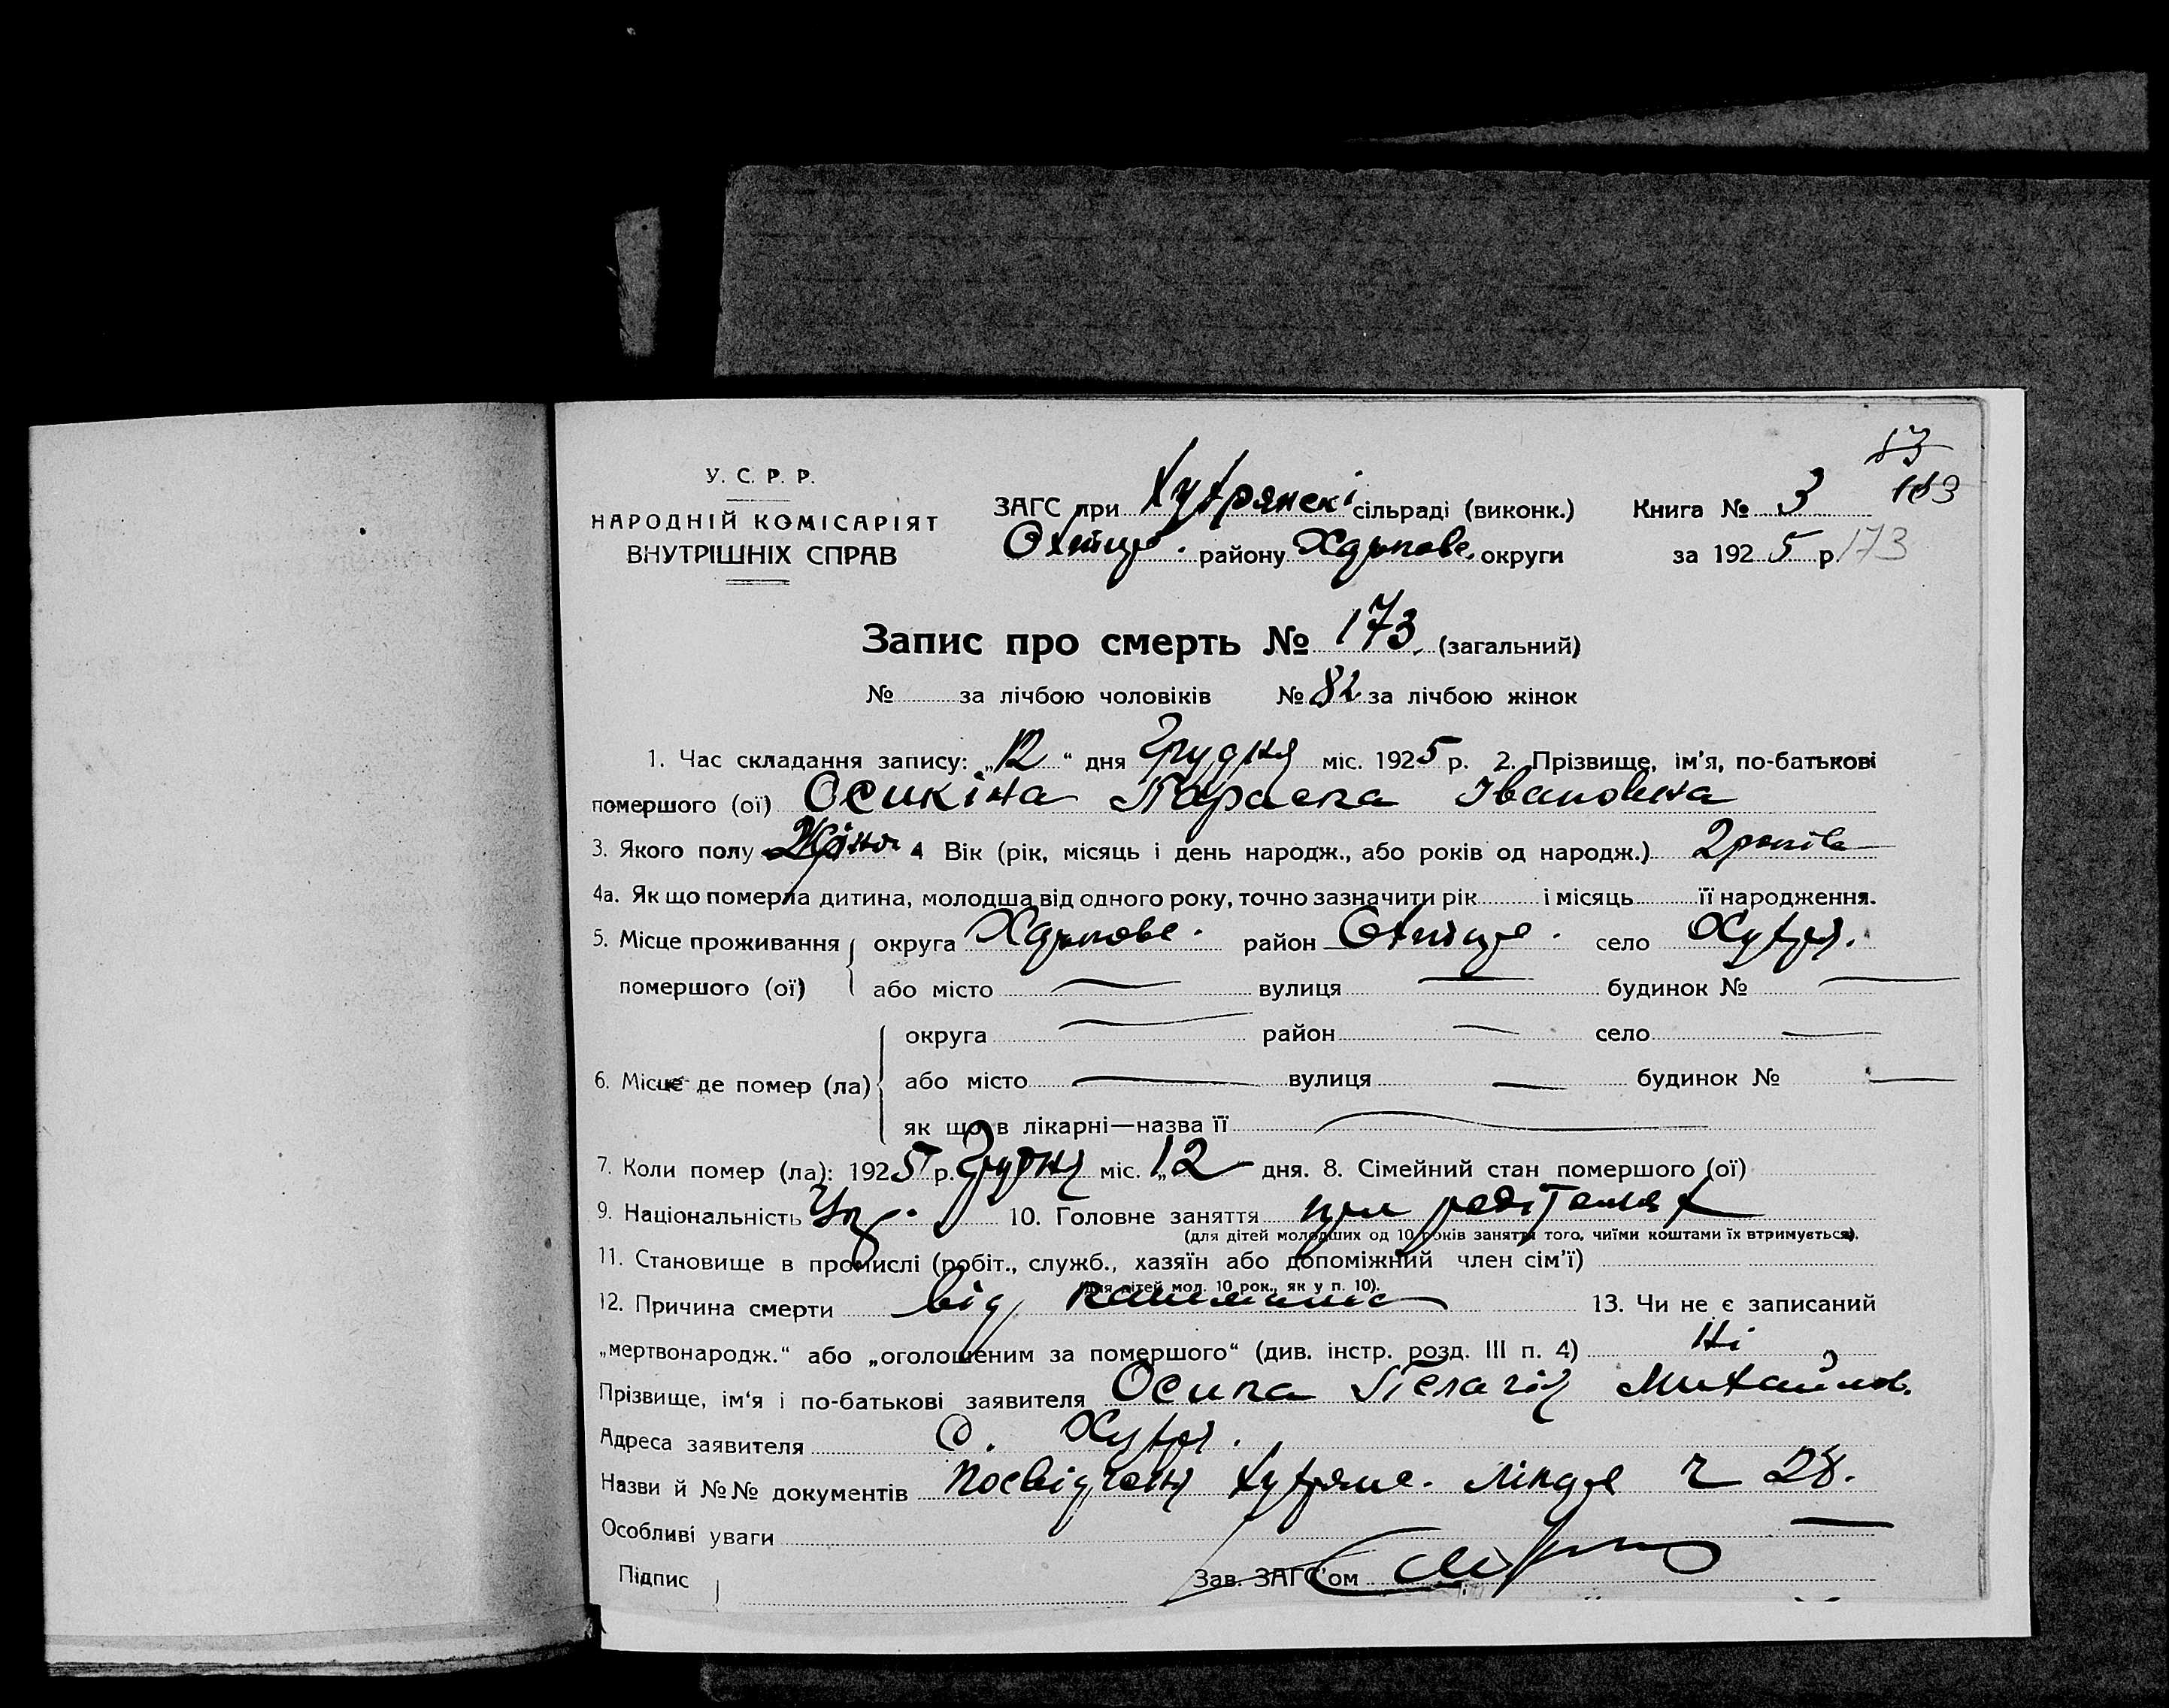 13
У. С. Р. Р.
НАРОДНІЙ КОМІСАРІЯТ
ВНУТРІШНІХ СПРАВ
ЗАГС при Хухрянскі сільраді (виконк.)
Охтир. району Харьков. округи
Книга № 3 163
за 1925 р. 173
Запис про смерть № 173 (загальний)
№ за лічбою чоловіків № 82 за лічбою жінок
1. Час складання запису: „12“ дня Грудня міс. 1925 р. 2. Прізвище, ім'я, по-батькові
помершого (ої) Осикіна Параска Івановна
3. Якого полу Жіно 4 Вік (рік, місяць і день народж., або років од народж.) 2 років
4а. Як що померла дитина, молодша від одного року, точно зазначити рік і місяць її народження.
5. Місце проживання помершого (ої) округа Харьков. район Охтир. село Хухря.
або місто — вулиця — будинок № —
6. Місце де помер (ла) округа — район — село —
або місто — вулиця — будинок № —
як що в лікарні—назва її —
7. Коли помер (ла): 1925 р. Грудня міс. „12 дня. 8. Сімейний стан помершого (ої)
9. Національність Укр. 10. Головне заняття при родітелях
(для дітей молодших од 10 років заняття того, чиїми коштами їх втримується).
11. Становище в промислі (робіт., служб., хазяїн або допоміжний член сім'ї)
(для дітей мол. 10 рок., як у п. 10).
12. Причина смерти від 13. Чи не є записаний
„мертвонародж.“ або „оголошеним за помершого“ (див. інстр. розд. III п. 4) Ні
Прізвище, ім'я і по-батькові заявителя Осипа Пелагія Михайлов.
Адреса заявителя С. Хухря.
Назви й №№ документів Посвідченя Хухрянс. ч 28.
Особливі уваги —
Підпис Зав. ЗАГС'ом